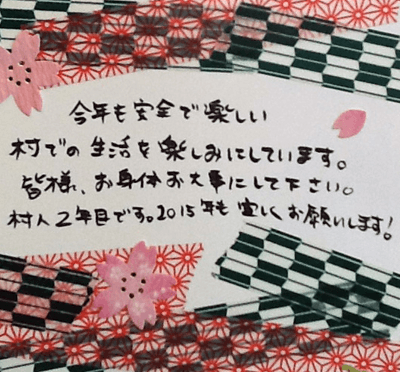 今年も安全で楽しい
村での生活を楽しみにしています。
皆様、お身体お大事にして下さい。
村人2年目です。2015年も宜しくお願いします!